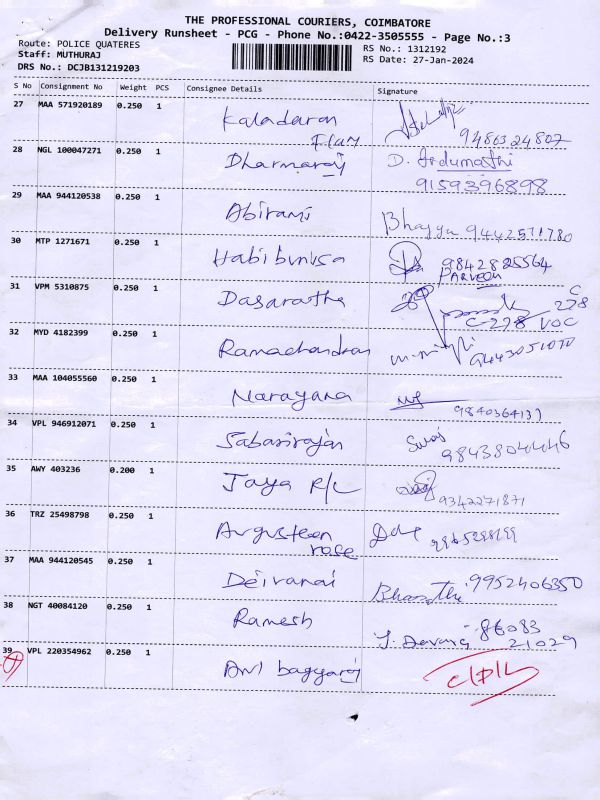 THE PROFESSIONAL COURIERS, COIMBATORE
Delivery Runsheet - PCG - Phone No.:0422-3505555 - Page No.:3
Route: POLICE QUATERES RS No.: 1312192
Staff: MUTHURAJ RS Date: 27-Jan-2024
DRS No.: DCJB131219203
S No Consignment No Weight PCS Consignee Details Signature
27 MAA 571920189 0.250 1 Kaladaran 9486324807
28 NGL 100047271 0.250 1 Dharmaraj D. Indumathi
9159396898
29 MAA 944120538 0.250 1 Abirami
30 MTP 1271671 0.250 1 Habibunisa 9842825564
PARVEEN
31 VPM 5310875 0.250 1 Dasaratha C 278
C-278 VOC
32 MYD 4182399 0.250 1 Ramachandran
33 MAA 104055560 0.250 1 Narayana
34 VPL 946912071 0.250 1 Sabarirajan
35 AWY 403236 0.200 1 Jaya R/C 9342271871
36 TRZ 25498798 0.250 1 Augusteen
rose
37 MAA 944120545 0.250 1 Deivanai 9952406350
38 NGT 40084120 0.250 1 Ramesh 86083
21029
39 VPL 220354962 0.250 1